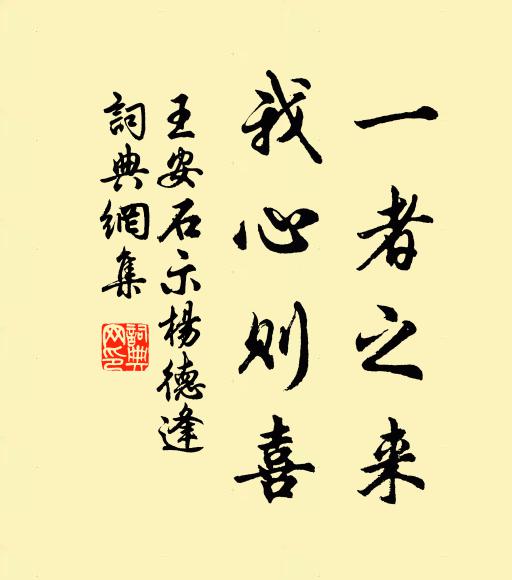 一者之来
我心则喜
王安石示楊德逢
詞典網集
詞典网印